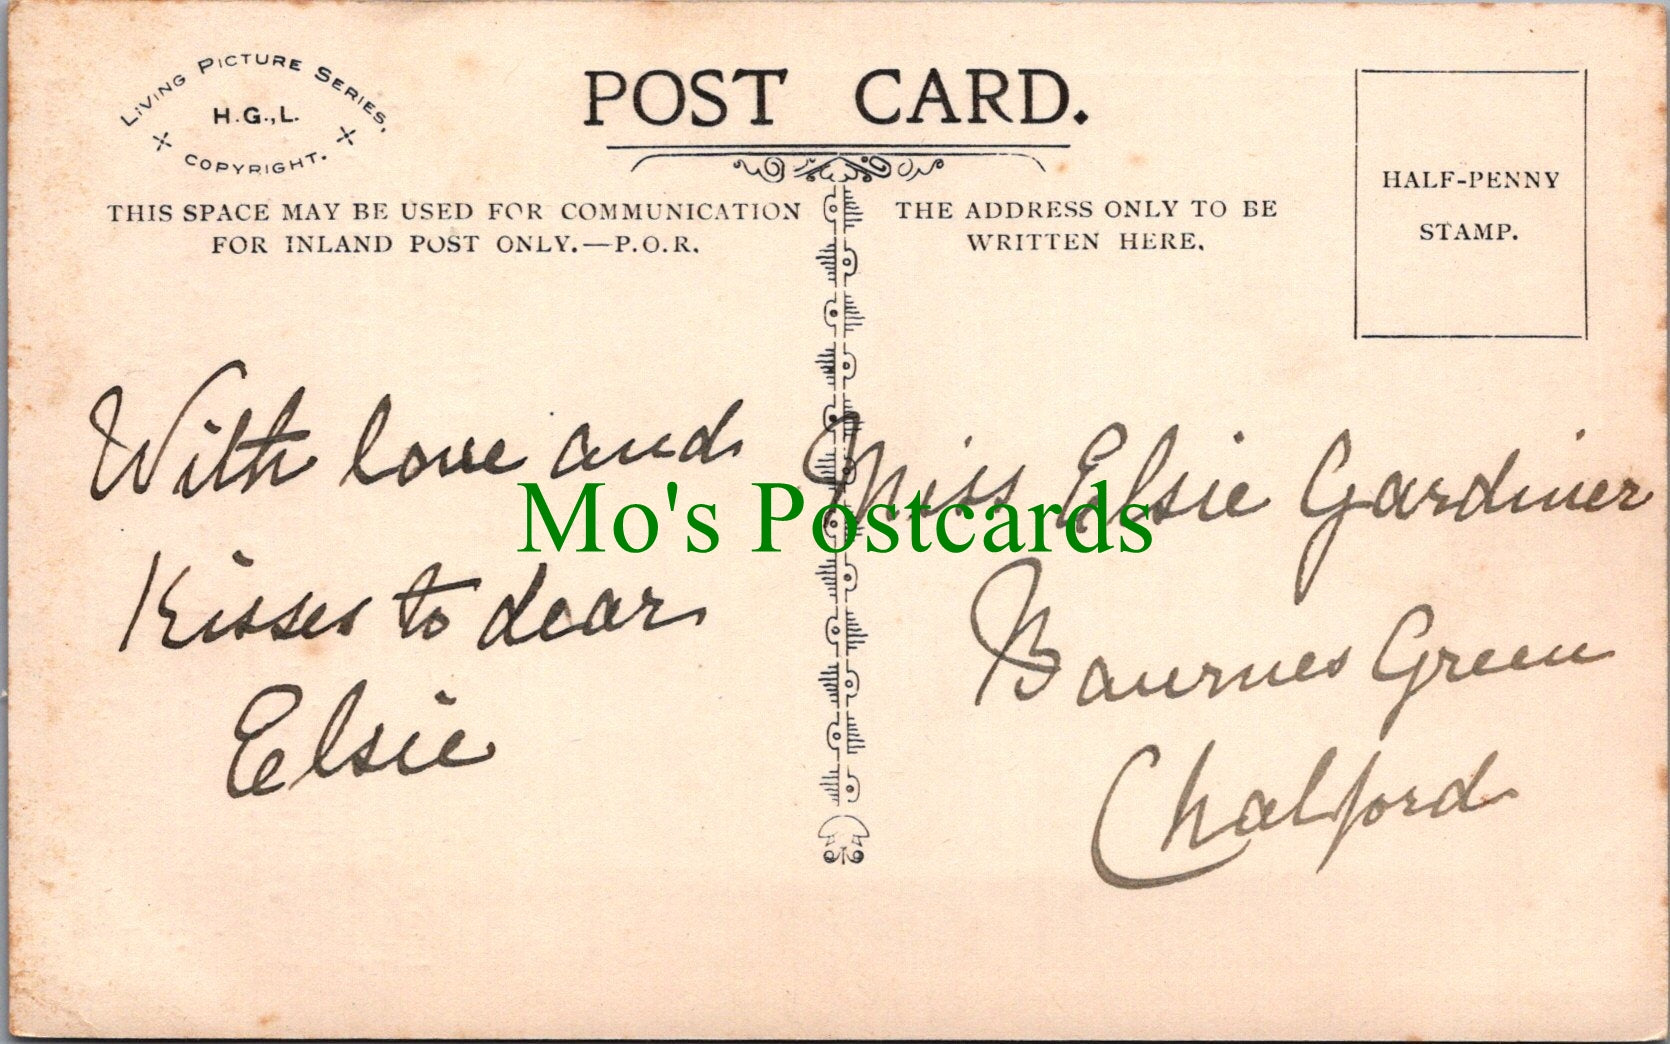 LIVING PICTURE SERIES,
H.G., L.
COPYRIGHT.
POST CARD.
THIS SPACE MAY BE USED FOR COMMUNICATION
FOR INLAND POST ONLY.—P.O.R.
THE ADDRESS ONLY TO BE
WRITTEN HERE.
HALF-PENNY
STAMP.
With love and
Kisses to dear
Elsie
Miss Elsie Gardiner
Bournes Green
Chalford
Mo's Postcards